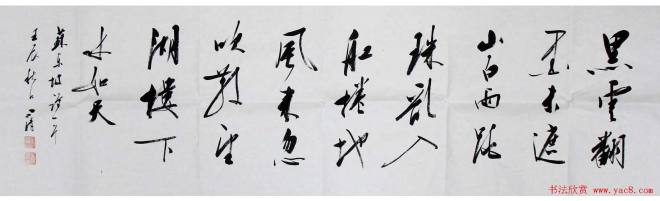 黑雲翻
墨未遮
山白雨跳
珠亂入
船捲地
風来忽
吹散望
湖樓下
水如天
蘇東坡詩一首
壬辰秋
书法欣赏
www.yac8.com